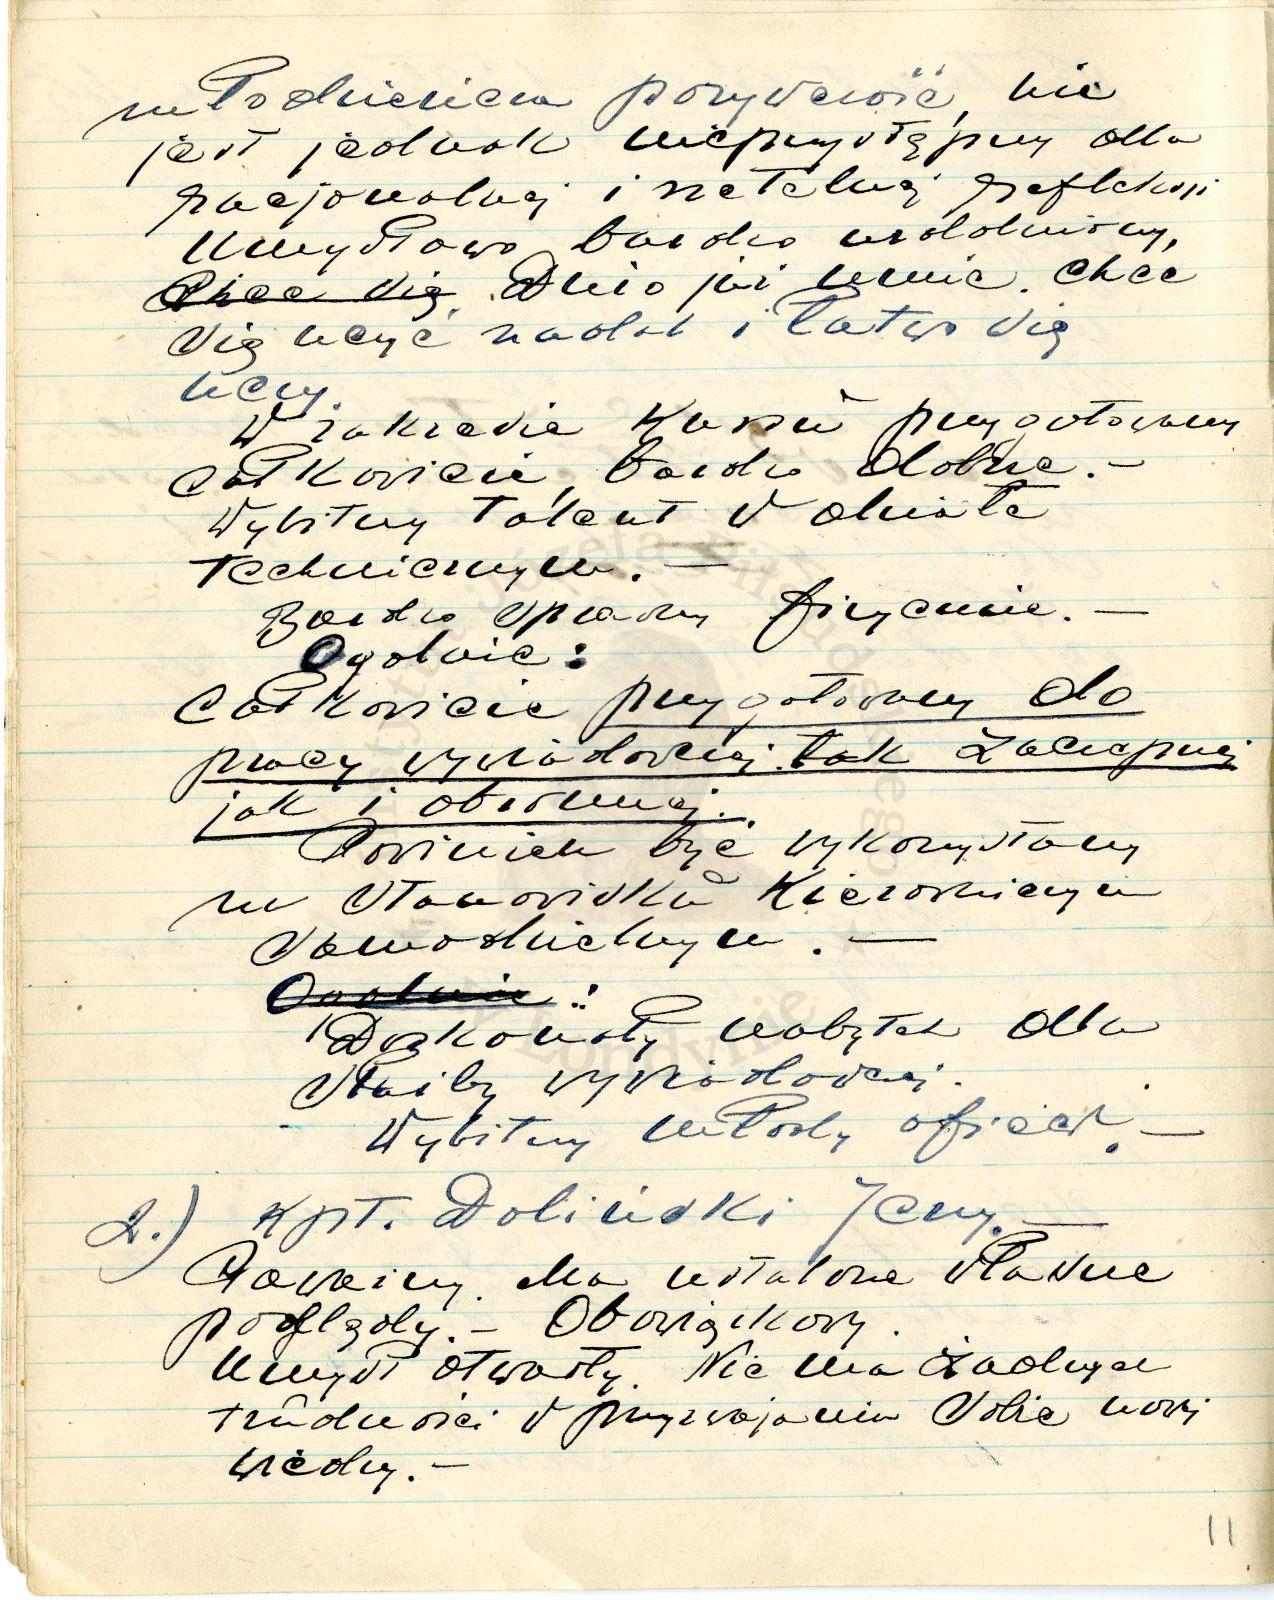 młodzieńcza porywczość, nie
jest jednak nieprzystępny dla
racjonalnej i rzetelnej refleksji
Umysłowo bardzo uzdolniony,
Chce się. Dużo już umie. Chce
się uczyć nadal i łatwo się
uczy.
W zakresie kursu przygotowany
całkowicie, bardzo dobrze. —
Wybitny talent w dziale
technicznym. —
Bardzo sprawny fizycznie. —
Ogólnie:
całkowicie przygotowany do
pracy wywiadowczej tak zaczepnej
jak i obronnej.
Powinien być wykorzystany
na stanowisku kierowniczym
samodzielnym. —
Ogólnie:
Doskonały nabytek dla
służby wywiadowczej.
Wybitny młody oficer. —
2.) Kpt. Doliński Jerzy. —
Poważny. Ma ustalone własne
poglądy. — Obowiązkowy.
Umysł otwarty. Nie ma żadnych
trudności w przyswajaniu sobie nowej
wiedzy. —
11
Józefa Piłsudskiego
w Londynie